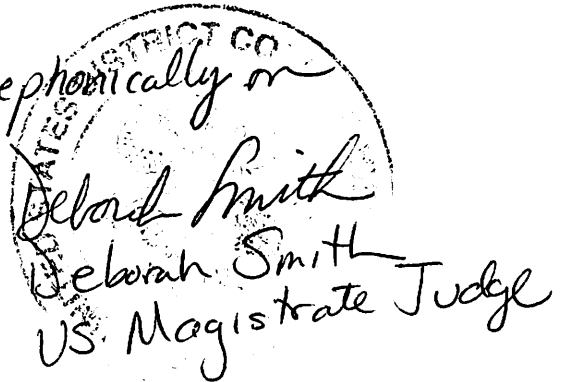 ephonically on
STATES DISTRICT CO
Deborah Smith
Deborah Smith
US. Magistrate Judge